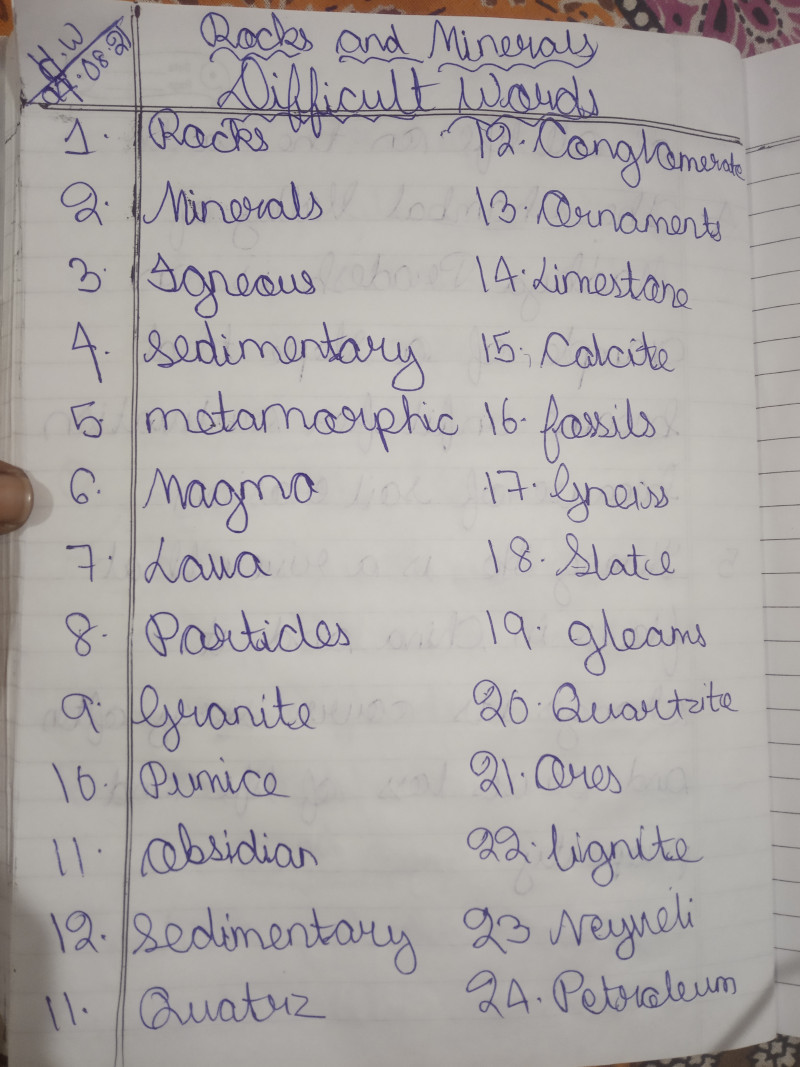 H.W
07.08.21
Rocks and Minerals
Difficult Words
1. Rocks
2. Minerals
3. Igneous
4. Sedimentary
5. metamorphic
6. Magma
7. Lava
8. Particles
9. Granite
10. Pumice
11. Obsidian
12. Sedimentary
11. Quatrz
12. Conglomerate
13. Ornaments
14. Limestone
15. Calcite
16. fossils
17. Gneiss
18. Slate
19. gleams
20. Quartzite
21. Ores
22. lignite
23 Neyveli
24. Petroleum